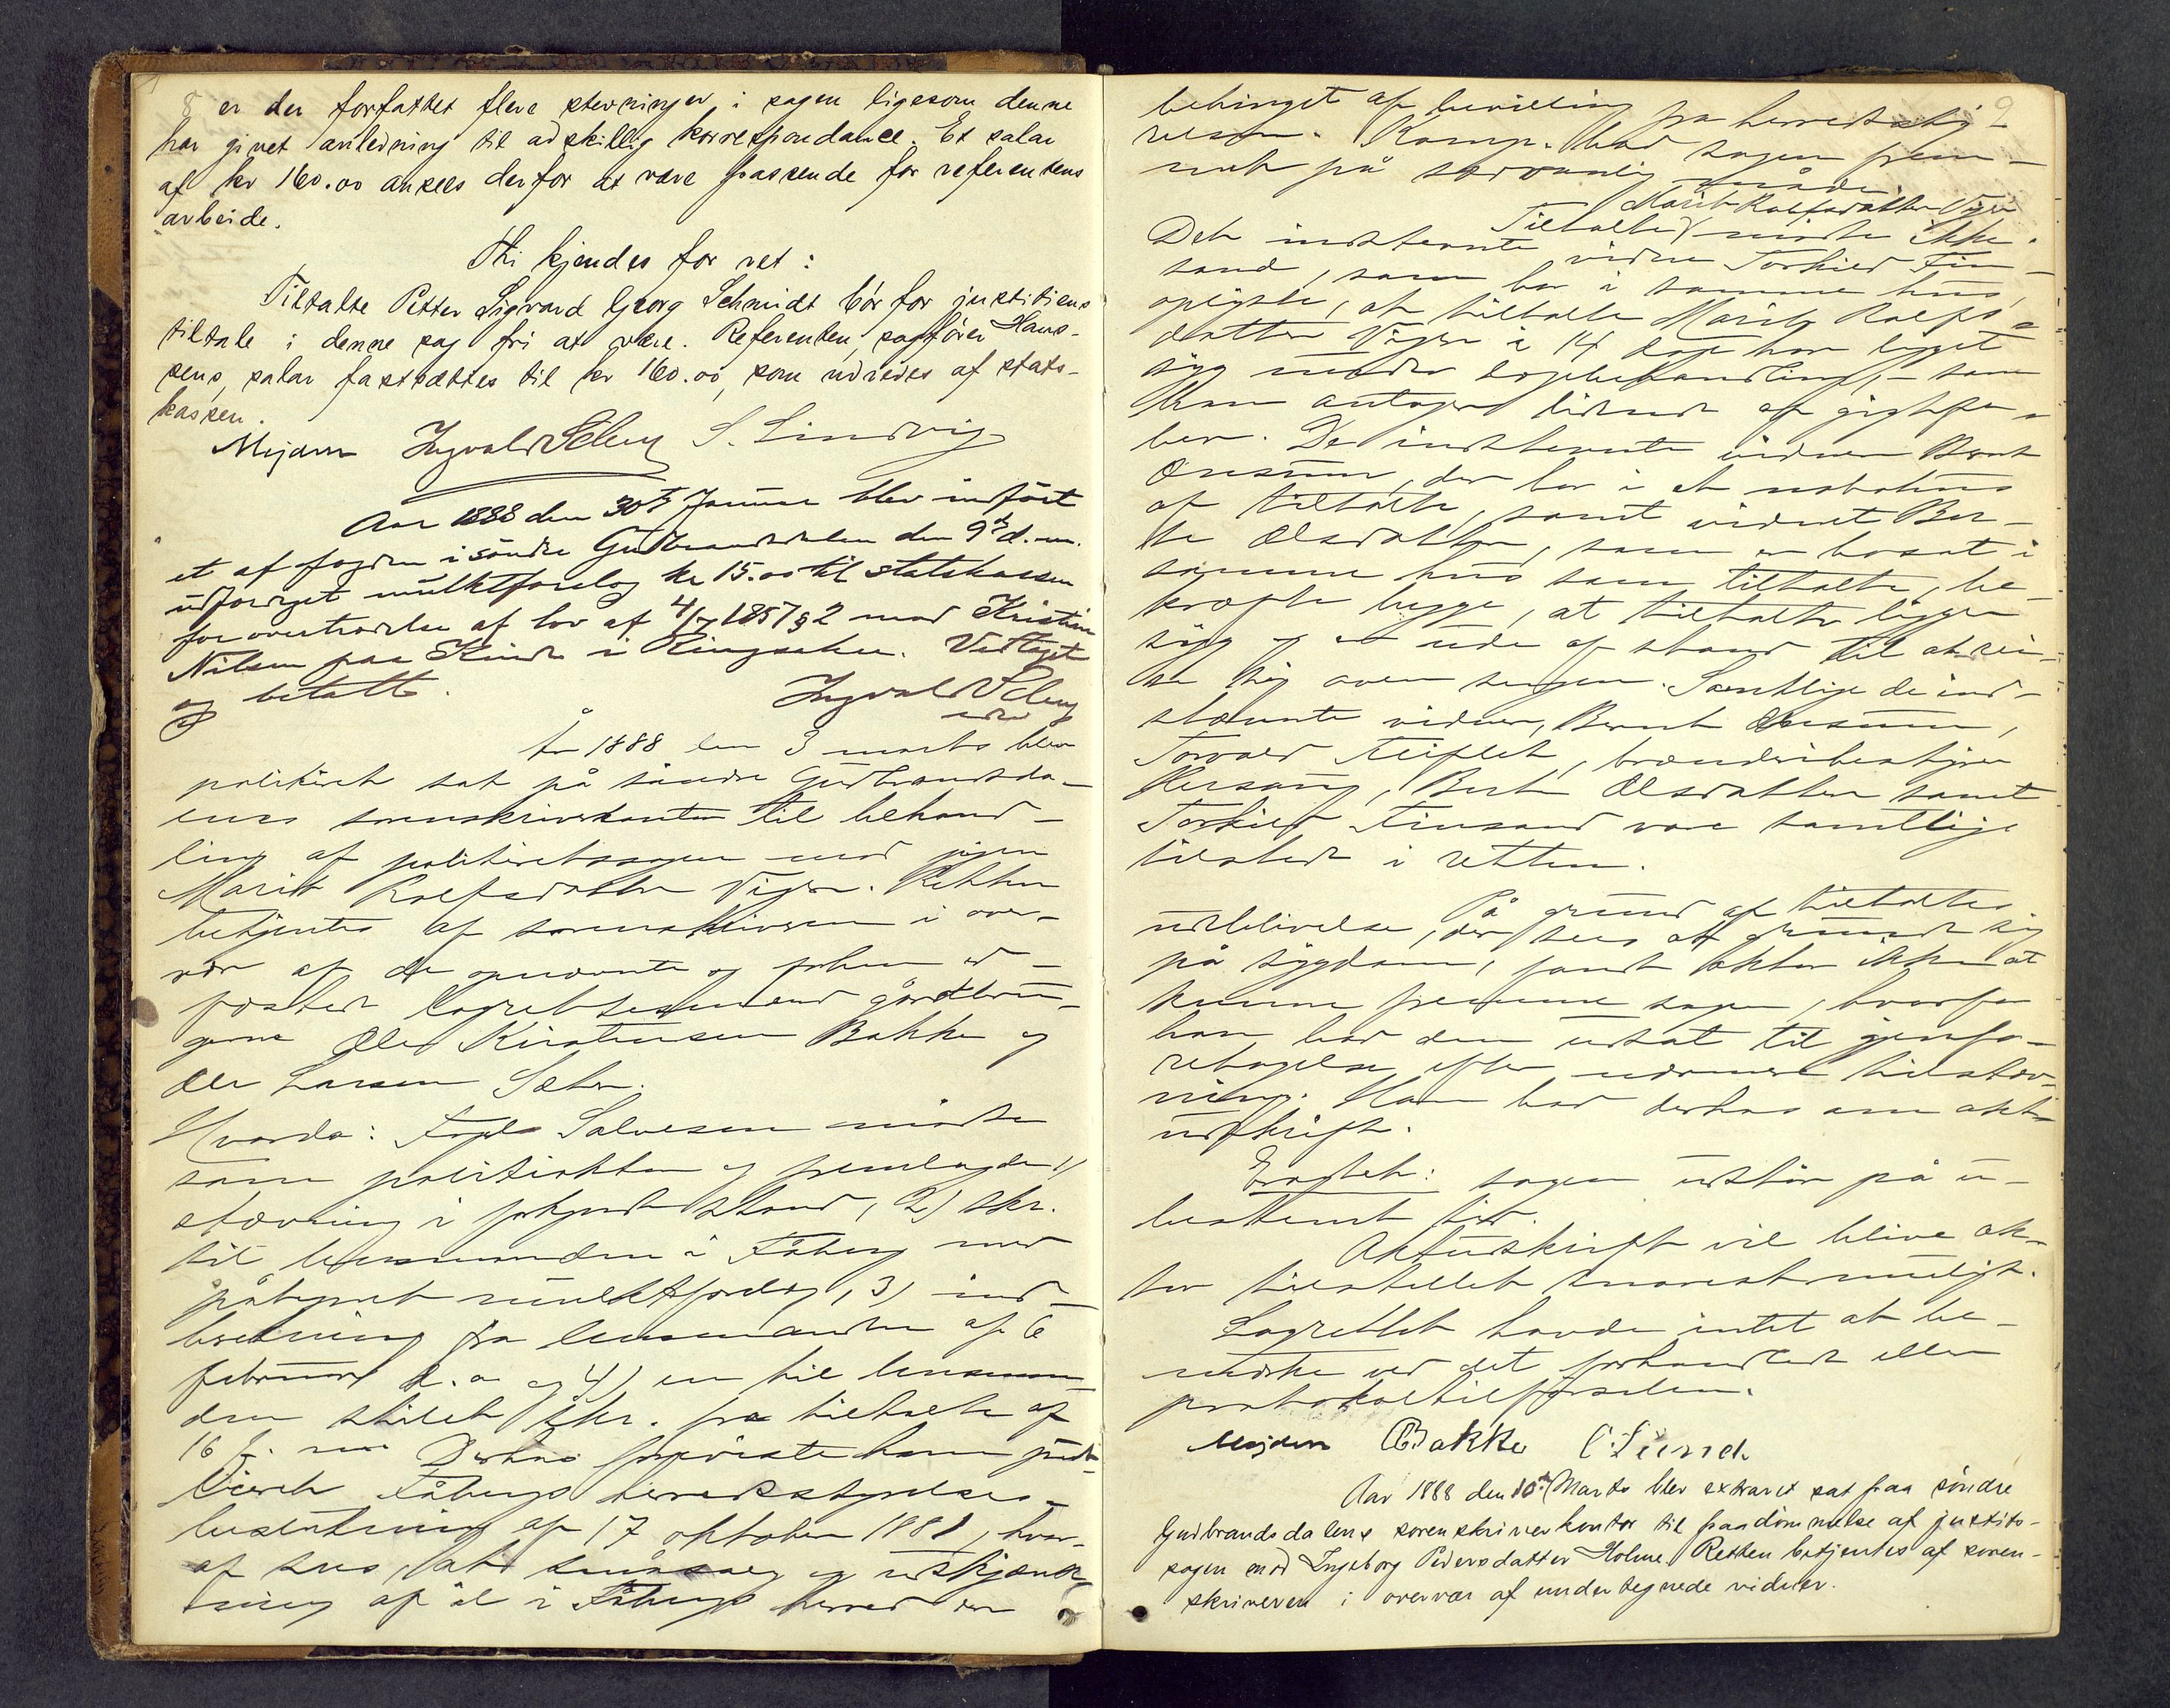 er der forfattet flere stevninger i sagen ligesom denne
har givet anledning til adskillig korrespondance. Et salar
af kr 160.00 ansees derfor at være passende for referentens
arbeide.
Thi kjendes for ret:
Tiltalte Petter Sigvard Georg Schmidt bör for justitiens
tiltale i denne sag fri at være. Referenten, sagförer Hans-
sens, salar fastsættes til kr 160.00, som udredes af stats-
kassen.
Mejdem Ingvald S. Lindvig
Aar 1888 den 30te Januar blev indfört
et af fogden i söndre Gudbrandsdalen den 9de d.m.
udfærdiget mulktforelæg kr 15.00 til statskassen
for overtrædelse af lov af 4/7 1857 § 2 mod Kristian
Nilsen paa Kinde i Ringsaker. Vedtaget
og betalt.
Ingvald
År 1888 den 3 marts blev
politiret sat på söndre Gudbrandsda-
lens sorenskriverkontor til behand-
ling af politiretssagen mod pigen
Marit Rolfsdatter Vigen. Retten
betjentes af sorenskriveren i over-
vær af de opnævnte og forhen ed-
fæstede lagrettesmænd gårdbru-
gerne Ole Kristensen Bakke og
Ole Larsen
Hvorda: Fogd Salvesen mödte
som politiaktor og fremlagde 1)
stævning i forkyndt stand, 2) skr.
til lensmanden i Fåberg med
påtegnet mulktforelæg, 3) ind-
beretning fra lensmanden af 6
februar d.a. og 4) en til lensman-
den stilet skr. fra tiltalte af
16 f.m. Derhos fremviste han
Fåbergs herredsstyrelses-
beslutning af 17 oktober 1881, hvor-
af sees, at småsalg og udskjænk-
ning af öl i Fåbergs herred er
9
betinget af bevilling fra herredssty-
relsen. Komp. bad sagen frem-
met på sedvanlig måde.
Marit Rolfsdatter Vigen
Tiltalte mödte ikke.
Det indstevnte vidne Torkild Fin-
sand, som bor i samme hus,
oplyste, at tiltalte Marit Rolfs-
datter Vigen i 14 dage har ligget
syg under lægebehandling, som
han antager lidende af gigtfe-
ber. De indstevnte vidner Bernt
der bor i et nabohus
af tiltalte, samt vidnet Ber-
the Olsdatter, som er bosat i
samme hus som tiltalte, be-
kræfte begge, at tiltalte ligger
syg og er ude af stand til at rei-
se sig over sengen. Samtlige de ind-
stævnte vidner, Bernt
Torvald brænderibestyrer
Berthe Olsdatter samt
Torkild Finsand vare samtlige
tilstede i retten.
På grund af tiltaltes
udeblivelse, der sees at grunde sig
på sygdom, fandt aktor ikke at
kunne fremme sagen, hvorfor
han bad den udsat til gjenfo-
retagelse efter nærmere tilstæv-
ning. Han bad derhos om akts-
udskrift.
Eragtet: sagen udstår på u-
bestemt tid.
Aktudskrift vil blive ak-
tor tilstillet snarest muligt.
Lagrettet havde intet at be-
mærke ved det forhandlede eller
protokoltilförselen.
Mejdem Bakke
Aar 1888 den 10de Marts blev extraret sat paa söndre
Gudbrandsdalens sorenskriverkontor til paadömmelse af justits-
sagen mod Ingeborg Pedersdatter Holme. Retten betjentes af soren-
skriveren i overvær af undertegnede vidner.